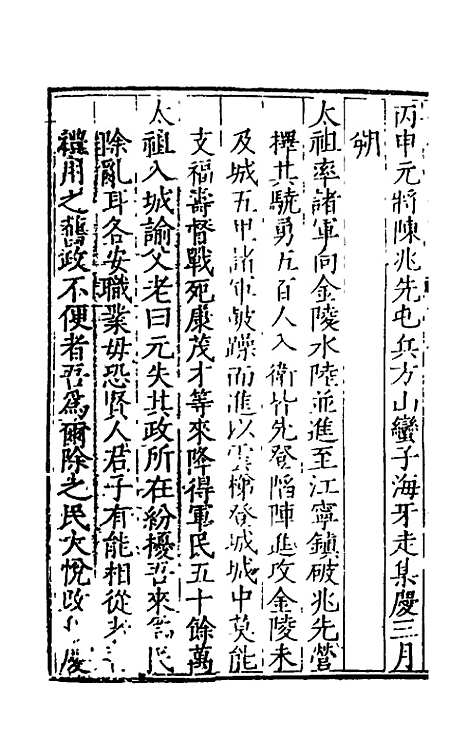 丙申元將陳兆先屯兵方山蠻子海牙走集慶三月
朔
太祖率諸軍向金陵水陸並進至江寧鎮破兆先營
擇其驍勇五百人入衛皆先登陷陣進攻金陵未
及城五里諸軍鼓躁而進以雲梯登城城中莫能
支福壽督戰死康茂才等來降得軍民五十餘萬
太祖入城諭父老曰元失其政所在紛擾吾來為民
除亂耳各安職業毋恐賢人君子有能相從者
禮用之舊政不便者吾為爾除之民大悅改慶